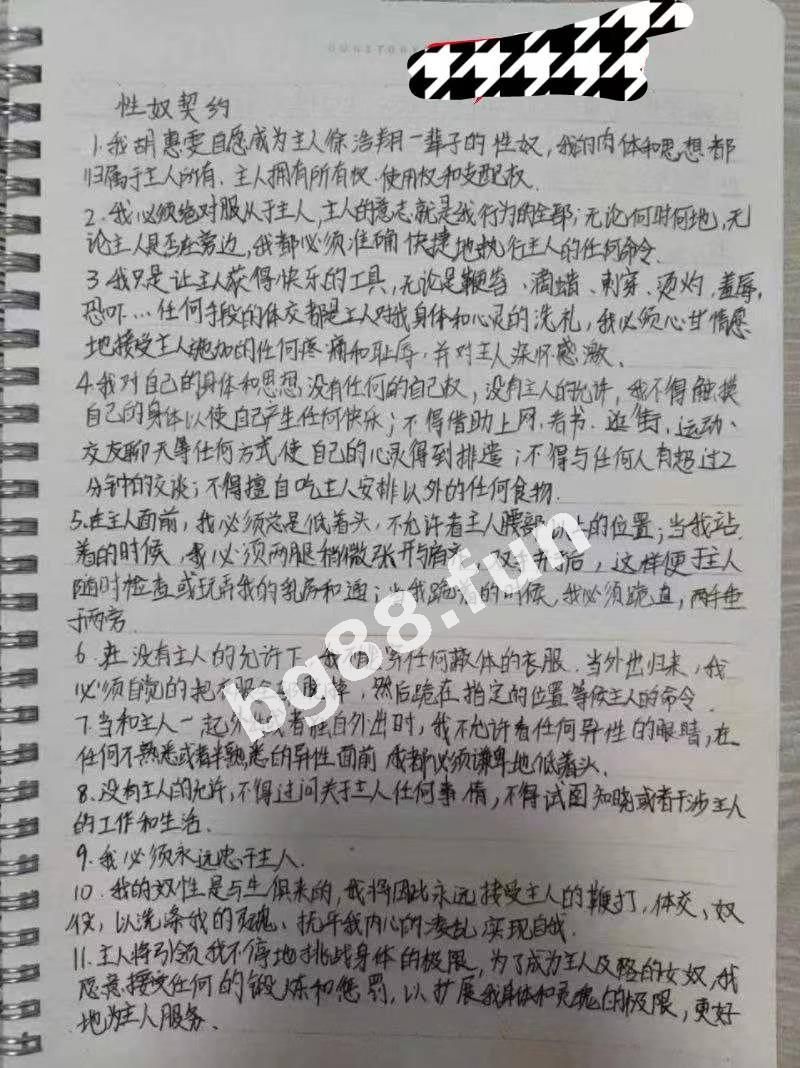 性奴契约
1.我胡惠雯自愿成为主人徐浩翔一辈子的性奴,我的肉体和思想都
归属于主人所有、主人拥有所有权.使用权和支配权.
2.我必须绝对服从于主人,主人的意志就是我行为的全部;无论何时何地,无
论主人是否在旁边,我都必须准确快捷地执行主人的任何命令.
3.我只是让主人获得快乐的工具,无论是鞭笞、滴蜡、刺穿、烫灼、羞辱,
恐吓…任何手段的体交都是主人对我身体和心灵的洗礼,我必须心甘情愿
地接受主人施加的任何疼痛和耻辱,并对主人深怀感激.
4.我对自己的身体和思想没有任何的自己权,没有主人的允许,我不得触摸
自己的身体以使自己产生任何快乐;不得借助上网.看书.逛街,运动、
交友聊天等任何方式使自己的心灵得到排遣;不得与任何人有超过2
分钟的交谈;不得擅自吃主人安排以外的任何食物.
5.在主人面前,我必须总是低着头,不允许看主人腰部以上的位置;当我站
着的时候,我必须两腿稍微张开与肩,双手背后,这样便于主人
随时检查或玩弄我的乳房和道;当我跪着的时候,我必须跪直,两手垂
于两旁.
6.在没有主人的允许下,我不任何蔽体的衣服.当外出归来,我
必须自觉的把衣服全,然后跪在指定的位置等候主人的命令.
7.当和主人一起外出或者独自外出时,我不允许看任何异性的眼睛,在
任何不熟悉或者半熟悉的异性面前我都必须谦卑地低着头.
8.没有主人的允许,不得过问关于主人任何事情,不得试图知晓或者干涉主人
的工作和生活.
9.我必须永远忠于主人.
10.我的奴性是与生俱来的,我将因此永远接受主人的鞭打,体交、奴
役,以洗涤我的灵魂、抚平我内心的凌乱,实现自我.
11.主人将引领我不停地挑战身体的极限,为了成为主人的女奴,我
愿意接受任何的锻炼和惩罚,以扩展我身体和灵魂的极限,更好
地为主人服务.
bg88.fun